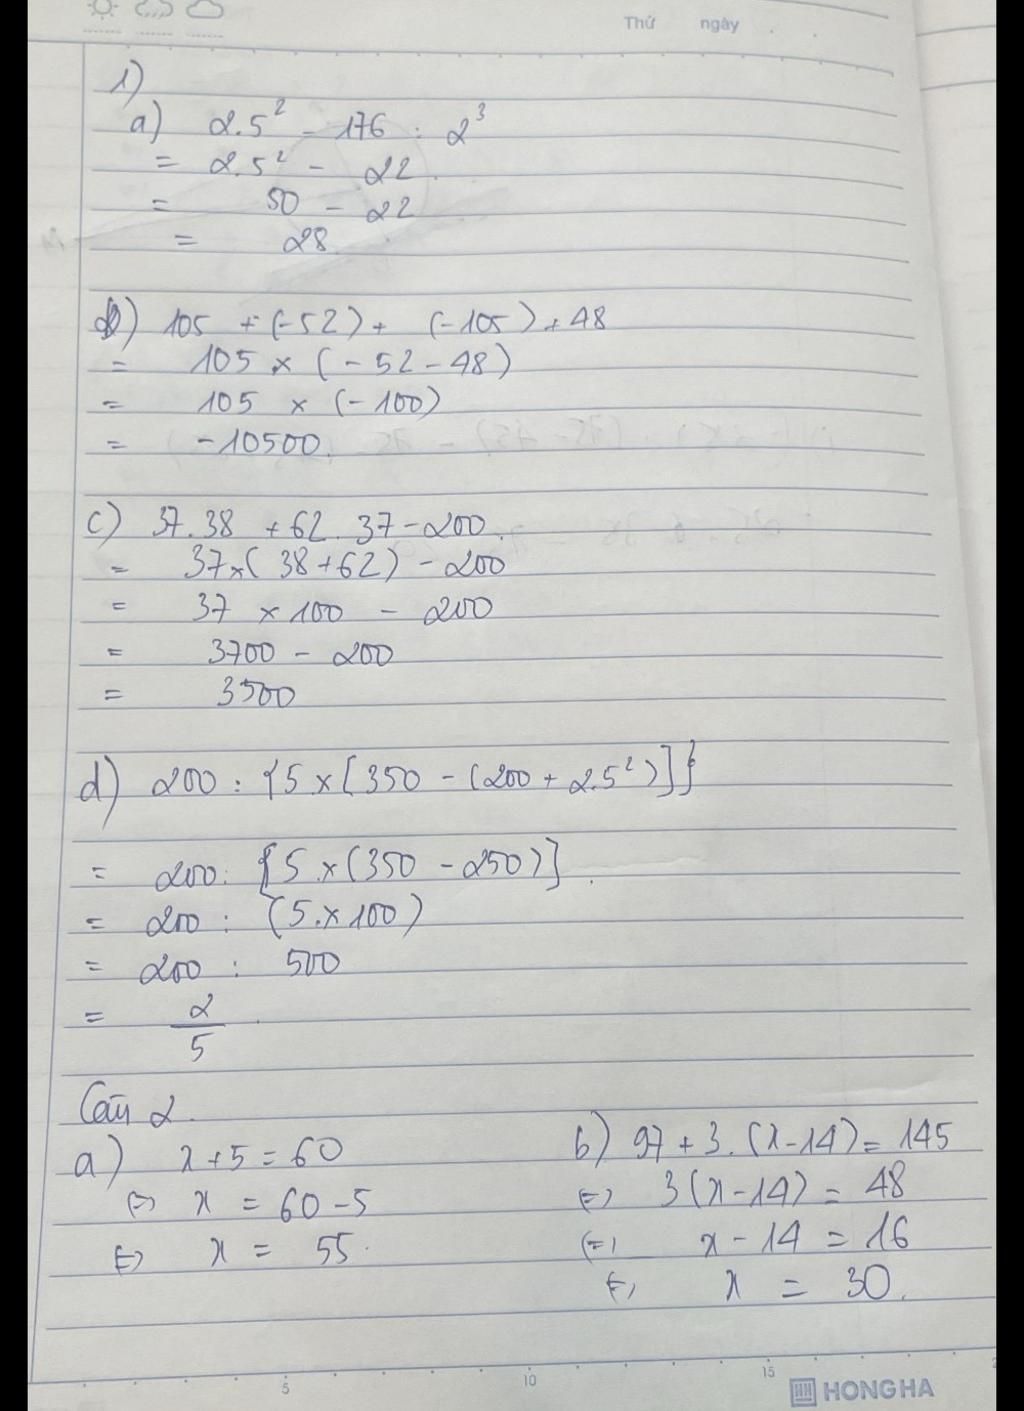 Thứ ngày
1)
a) 2.5² - 176 : 2³
= 2.5² - 22
= 50 - 22
= 28
b) 105 + (-52) + (-105) + 48
= 105 × (-52 - 48)
= 105 × (-100)
= -10500.
c) 37.38 + 62.37 - 200.
= 37×(38+62) - 200
= 37 × 100 - 200
= 3700 - 200
= 3500
d) 200 : {5 × [350 - (200 + 2.5²)]}
= 200 : [5 × (350 - 250)]
= 200 : (5.×100)
= 200 : 500
= 2/5
Câu 2.
a) x + 5 = 60
⇔ x = 60 - 5
⇔ x = 55.
b) 97 + 3.(x - 14) = 145
⇔ 3(x - 14) = 48
⇔ x - 14 = 16
⇔ x = 30.
5 10 15
HONG HA